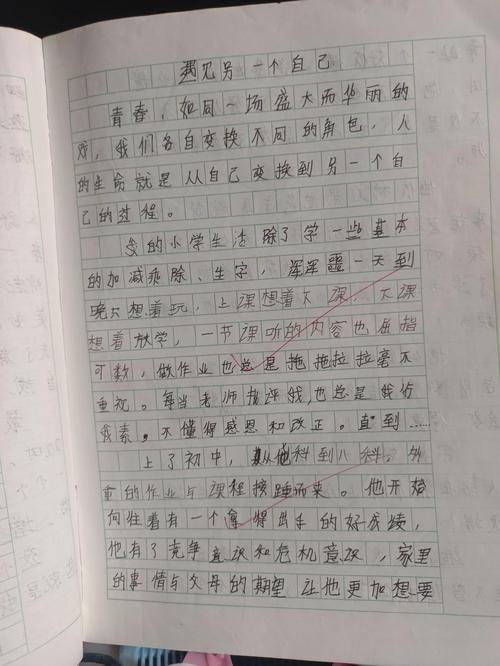 遇见另一个自己
青春，如同一场盛大而华丽的
戏，我们各自变换不同的角色，人
的生命就是从自己变换到另一个自
己的过程。
的小学生活除了学一些基本
的加减乘除、生字，浑浑噩一天到
晚只想着玩，上课想着下课，下课
想着放学，一节课听的内容也屈指
可数，做作业也总是拖拖拉拉毫不
重视。每当老师批评我，也总是我行
我素。不懂得感恩和改正。直到……
上了初中，从他科到八科，外
重的作业与课程接踵而来。他开始
向往着有一个拿得出手的好成绩，
他有了竞争意识和危机意识，家里
的事情与父母的期望让他更加想要